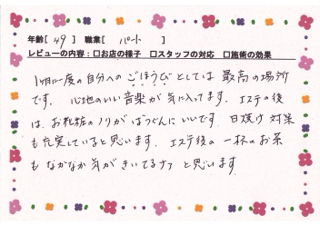 年齢[ 49 ] 職業[ パート ]
レビューの内容：□お店の様子 □スタッフの対応 □施術の効果
1ヶ月に一度の自分へのごほうびとしては 最高の場所
です。 心地のいい音楽が気に入ってます。エステの後
は、お化粧のノリがばつぐんにいいです。日焼け対策
も充実していると思います。エステ後の一杯のお茶
もなかなか気がきいてるナァ と思います